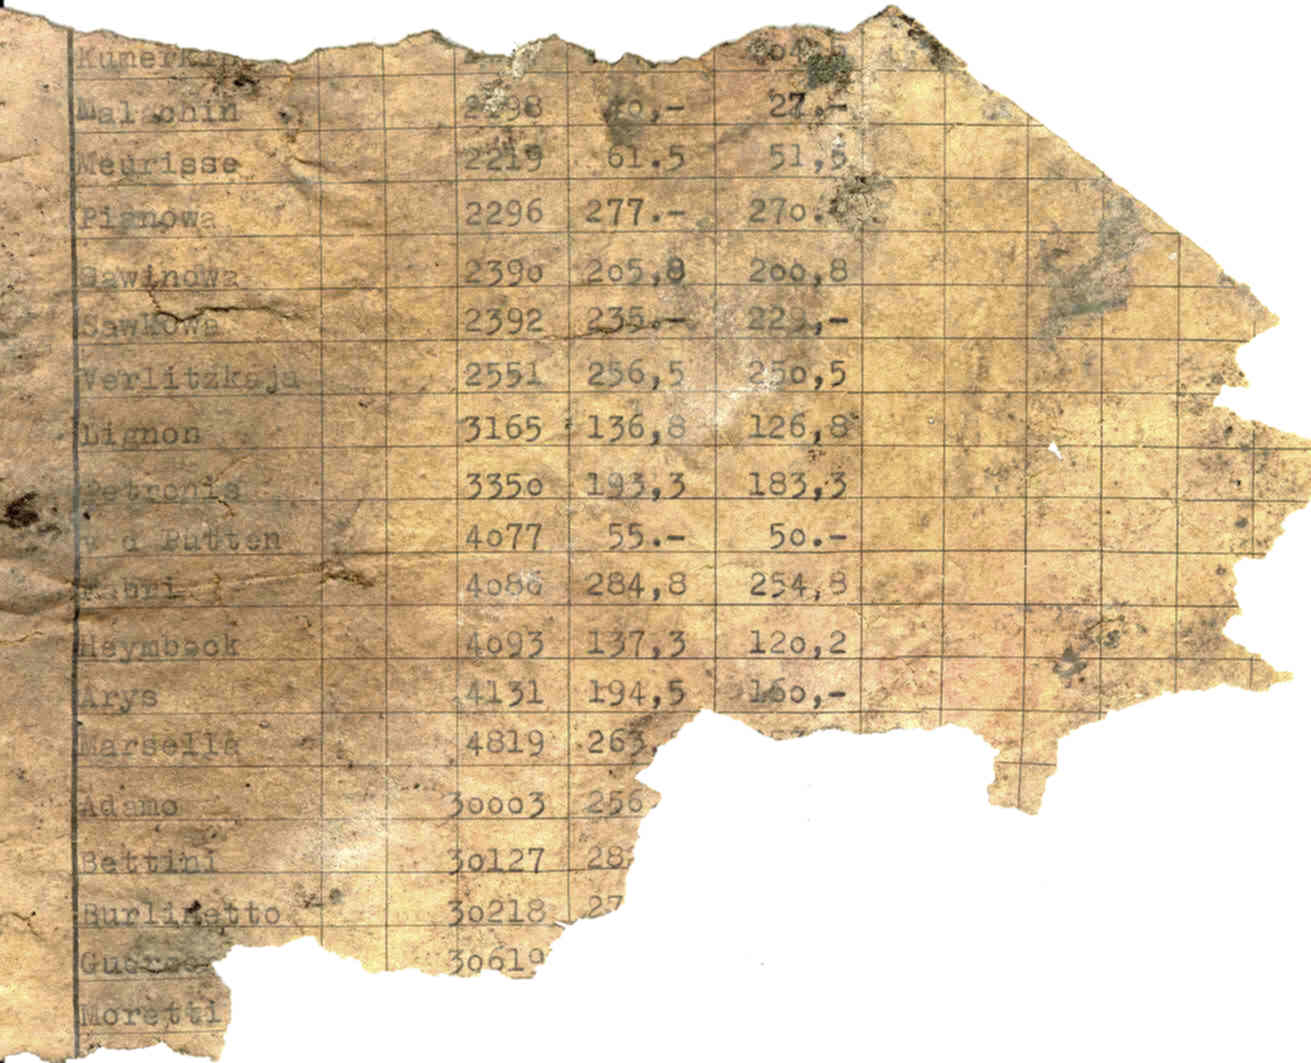 Malachin 2198 27.-
Meurisse 2219 61.5 51,5
Pianowa 2296 277.- 270.
Sawinowa 2390 205,8 200,8
Sawkowa 2392 235.- 229,-
Verlitzkaja 2551 256,5 250,5
Lignon 3165 136,8 126,8
Petronis 3350 193,3 183,3
v d Putten 4077 55.- 50.-
4086 284,8 254,8
Heymbeck 4093 137,3 120,2
Arys 4131 194,5 160,-
Marsella 4819 263,
Adamo 30003 256
Bettini 30127 28
Burlinetto 30218 27
30619
Moretti